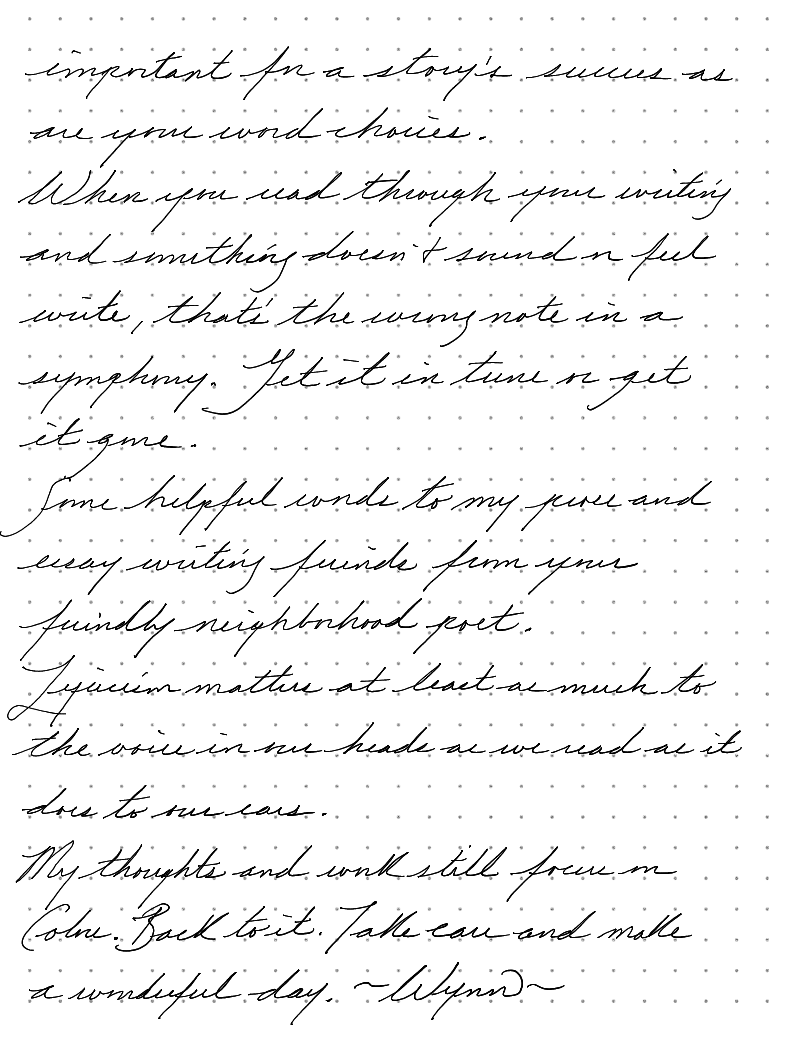 important for a story's success as
are your word choices.
When you read through your writing
and something doesn't sound or feel
write, that's the wrong note in a
symphony. Get it in tune or get
it gone.
Some helpful words to my prose and
essay writing friends from your
friendly neighborhood poet.
Lyricism matters at least as much to
the voice in our heads as we read as it
does to our ears.
My thoughts and work still focus on
Color. Back to it. Take care and make
a wonderful day. ~Wynn~